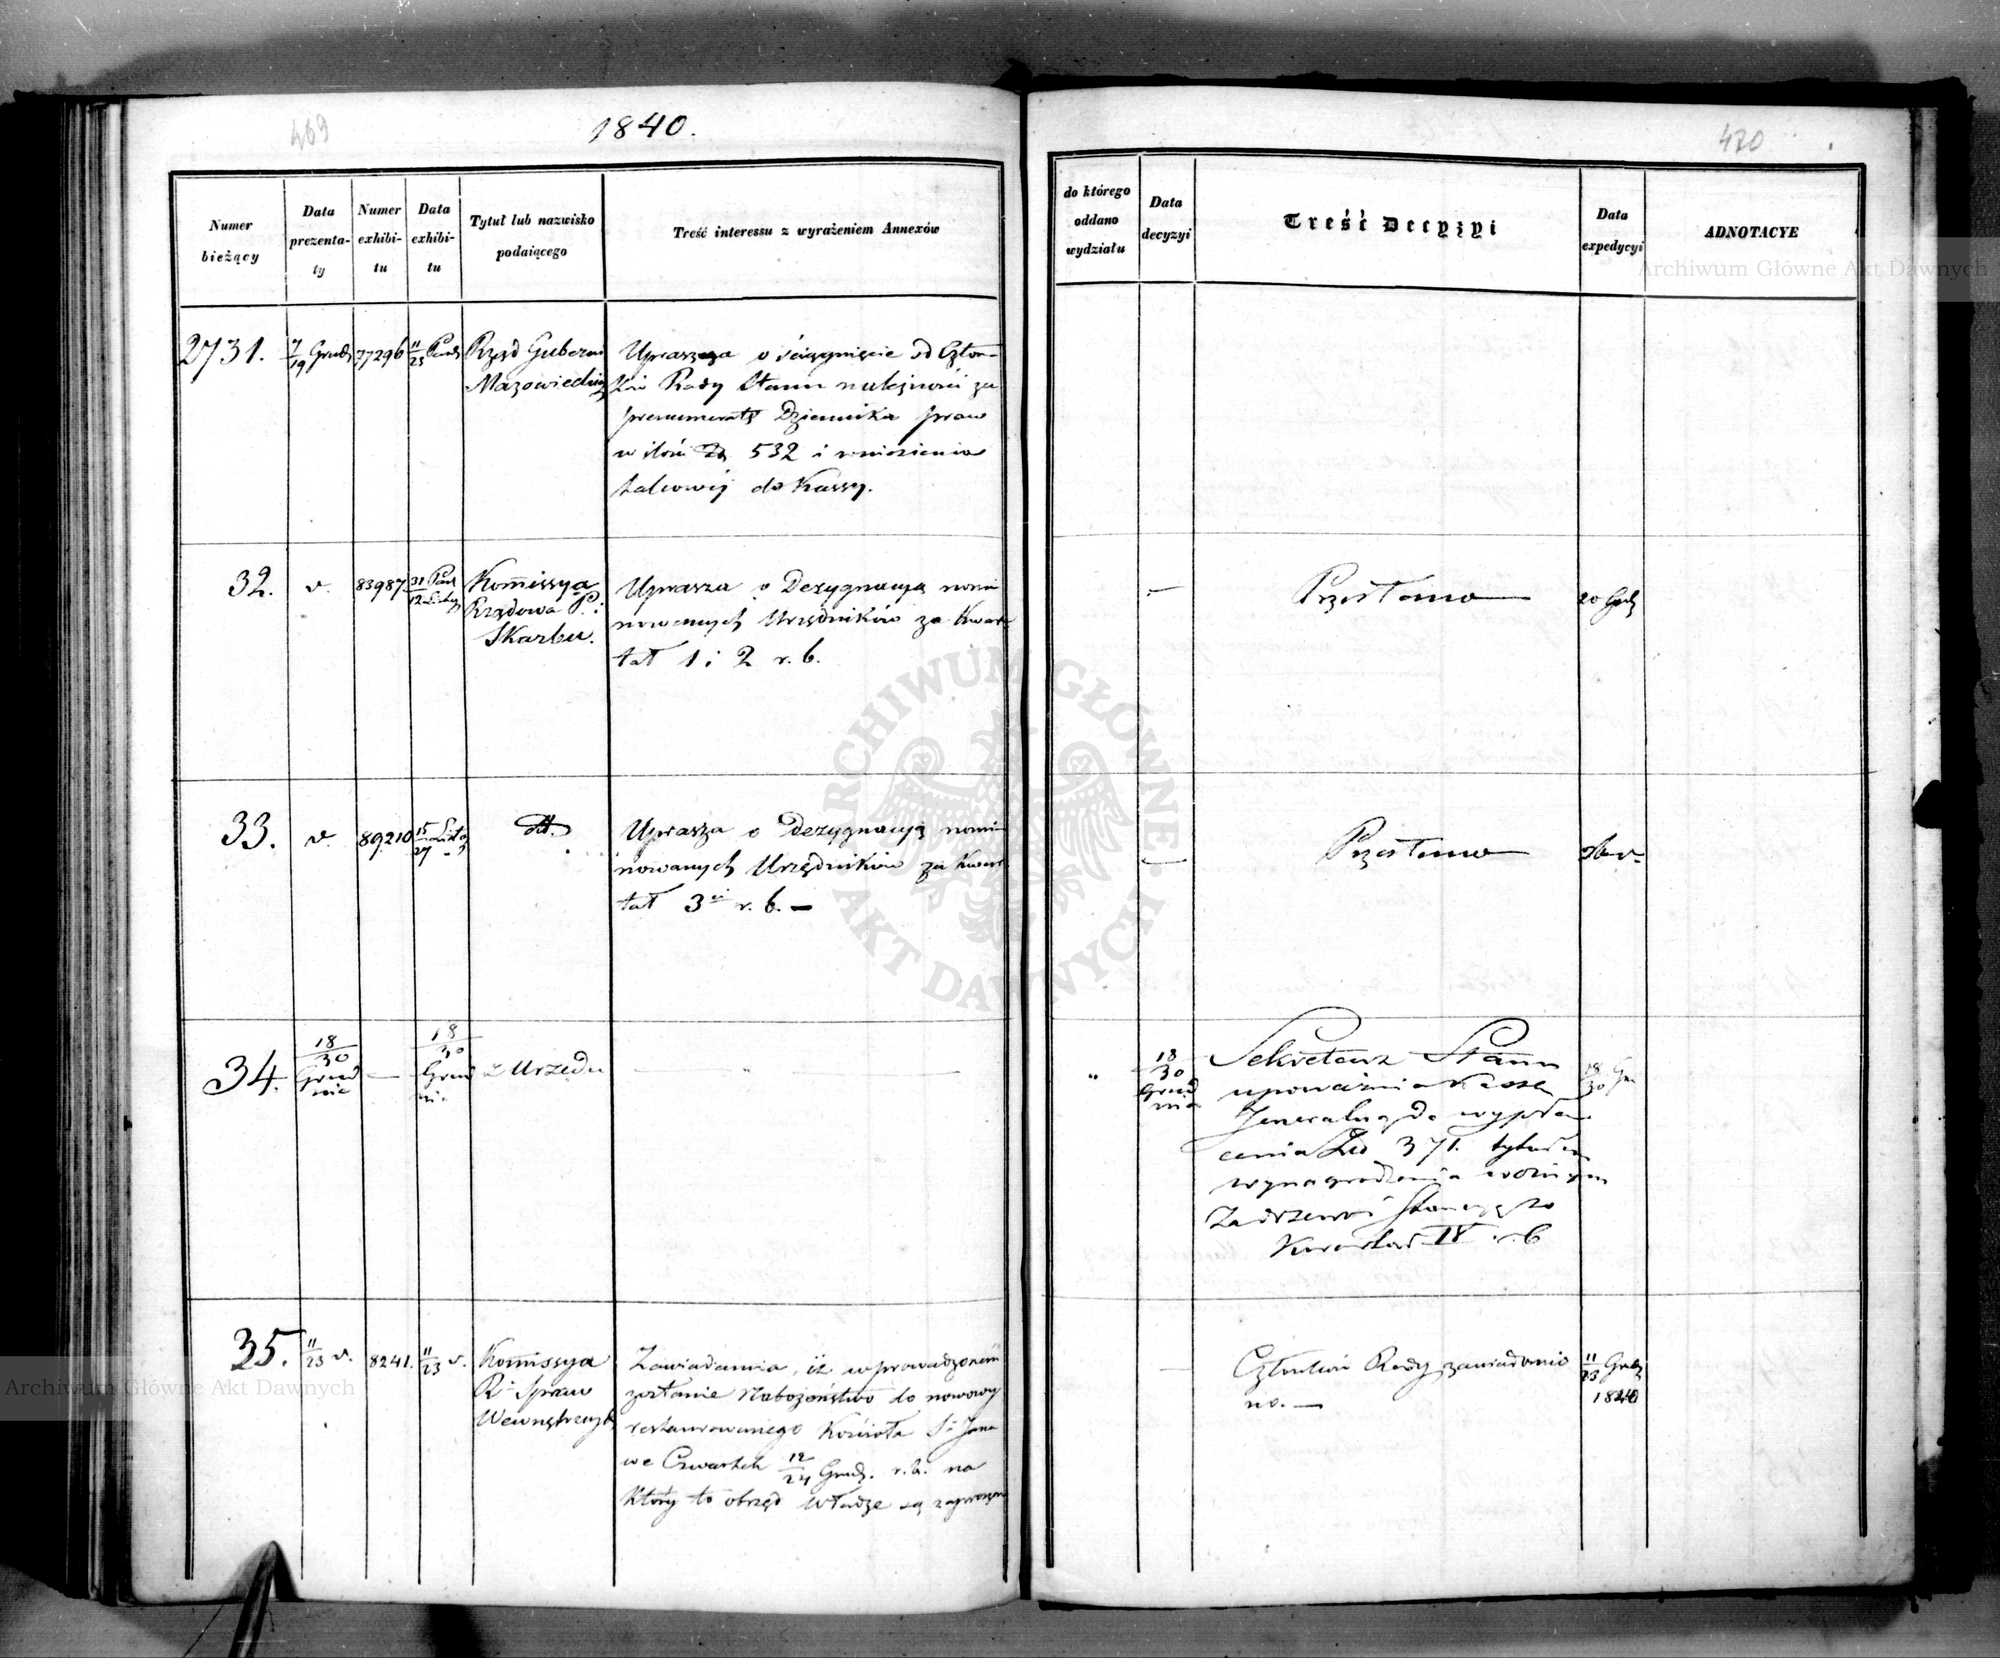 469
1840.
Numer bieżący
Data prezenta-ty
Numer exhibi-tu
Data exhibi-tu
Tytuł lub nazwisko podaiącego
Treść interessu z wyrażeniem Annexów
2731.
7/19 Grud
77296
11/23 Paźd
Rząd Guberni
Mazowieckiej
Uprasza o ściągnięcie od Człon-
ków Rady Stanu należności za
prenumeratę Dziennika praw
w ilości Zł 532 i wniesienia
takowej do Kassy.
32.
v.
83987.
31 Paź / 12 Listop
Kommissya
Rządowa P. i
Skarbu.
Uprasza o Dezygnacyą nomi
nowanych Urzędników za Kwar
tał 1 i 2 r. b.
33.
v.
89210
15/27 Listop
dt.
Uprasza o Dezygnacyą nomi-
nowanych Urzędników za Kwar
tał 3ci r. b. —
34.
18/30
Grud
nia
—
18/30
Grud
nia
z Urzędu
35.
11/23 v.
8241.
11/23 v.
Kommissya
R. Spraw
Wewnętrznych
Zawiadamia, iż wprowadzonem
zostanie Nabożeństwo do nowo
restaurowanego Kościoła S. Jana
we Czwartek 12/24 Grud. r. b. na
który to obrzęd Władze są zaproszone
470
do którego oddano wydziału
Data decyzyi
Treść Decyzyi
Data expedycyi
ADNOTACYE
—
Przesłano
20 Grud
—
Przesłano
"
18/30
Grud
nia
Sekretarz Stanu
upoważnia Kassę
Jeneralną do wypła
cenia Zło 371. tytułem
wynagrodzenia woźnym
Kwartał IV r. b
18/30 Gru
—
Członków Rady zawiadomio
no. —
11/23 Grud
1840
Archiwum Główne Akt Dawnych
ARCHIWUM GŁÓWNE AKT DAWNYCH
Archiwum Główne Akt Dawnych